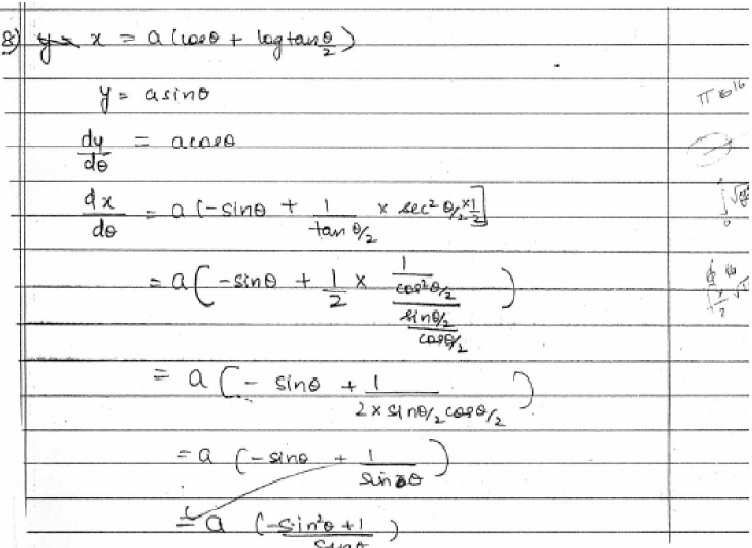 8) y = x = a(cosθ + log tan θ/2)
y = a sinθ
dy/dθ = a cosθ
dx/dθ = a(-sinθ + 1/(tan θ/2) × sec² θ/2 × 1/2]
= a(-sinθ + 1/2 × (1/(cos² θ/2))/((sin θ/2)/(cos θ/2)))
= a(-sinθ + 1/(2 × sin θ/2 cos θ/2))
= a(-sinθ + 1/(sin θ))
= a((-sin²θ + 1)/(sinθ))